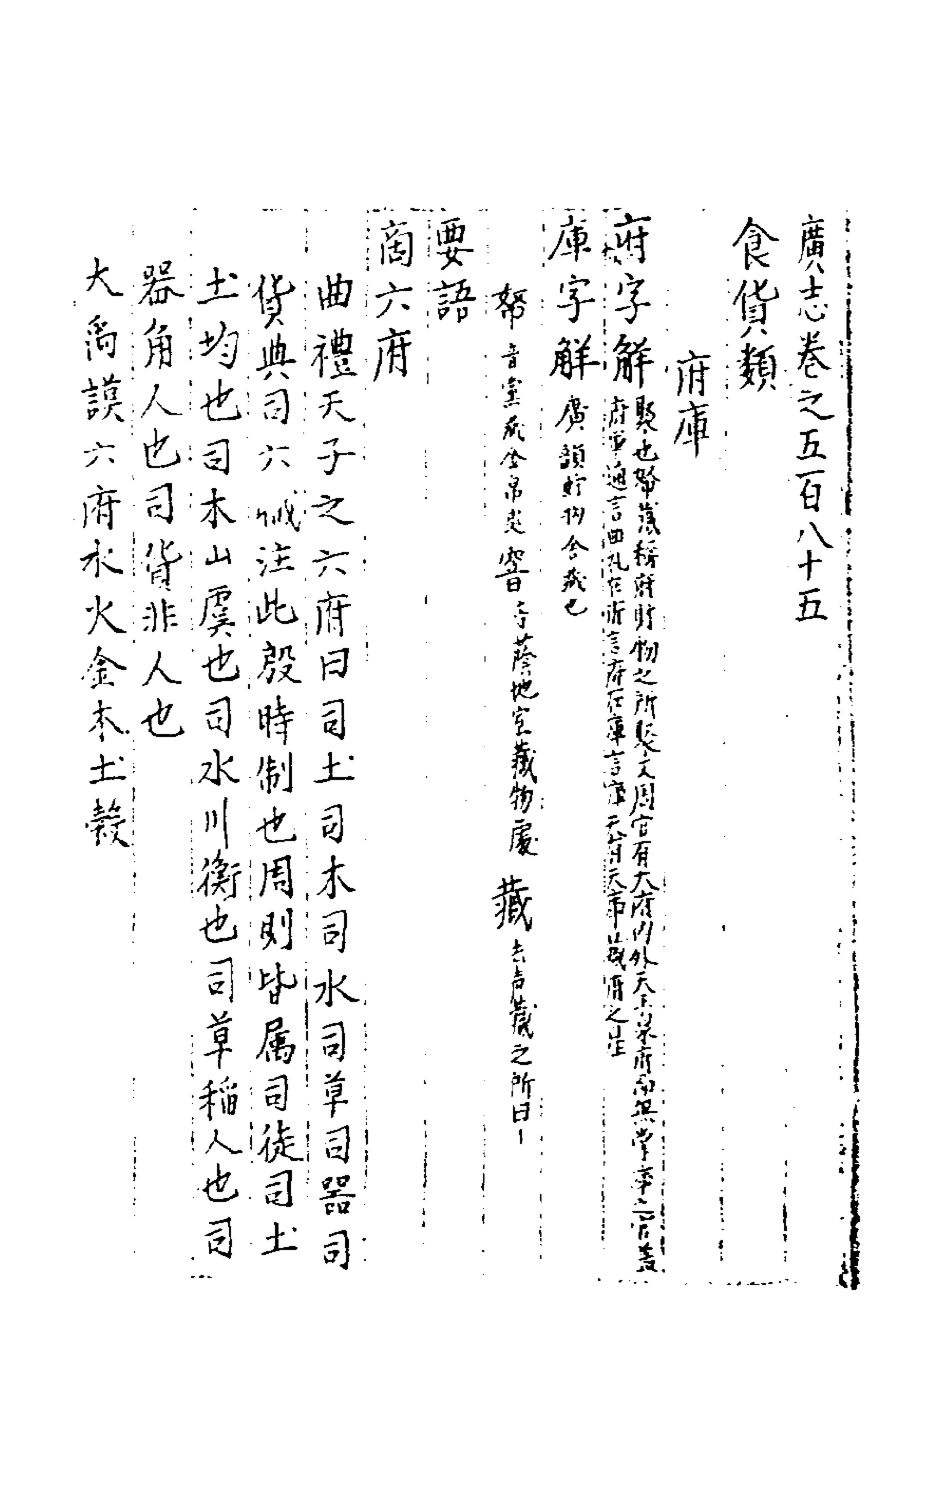 廣志卷之五百八十五
食貨類
府庫
府字解 聚也帑藏稱府財物之所聚又周官有大府內外天玉泉府而無掌庫之官蓋
府庫通言曲礼在府言府在庫言庫 天府天帝藏府之
庫字解 廣韻貯物舍藏也
帑 音黨 金帛 窖 地室藏物處 藏 去声藏之所曰丨
要語
商六府
曲禮天子之六府曰司土司木司水司草司器司
貨典司六職注此殷時制也周則皆属司徒司土
土均也司木山虞也司水川衡也司草稲人也司
器角人也司貨非人也
大禹謨六府水火金木土穀